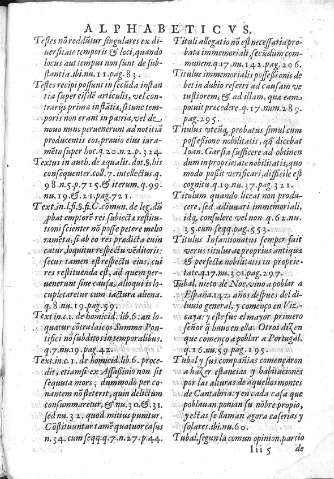 ALPHABETICVS.
Testes nō reddūtur singulares ex di
uersitate temporis & loci, quando
locus aut tempus non sunt de sub-
stantia. ibi. nu. 11. pag. 83.
Testes recipi possunt in secūda instan
tia super eisdē articulis, vel con-
trarijs primæ instātia, si tunc tem-
poris non erant in patria, vel de
nouo nunc peruenerunt ad notitiā
producentis eos, prauio eius iura-
mēto super hoc. q. 20. n. 2. p. 314.
Textus in auth. de æqualit. dot. §. his
consequenter. coll. 7. intellectus q.
98. n. 5. p. 715. & iterum. q. 99.
nu. 19. & 21. pag. 721.
Text. in. l. si. §. fi. C. commun. de leg. dū
phat emptorē rei subiecta restitu-
tioni scienter nō posse petere melio
ramēta, si ab eo res prædicta euin
catur, loquitur respectu vēditoris:
secus tamen est respectu eius, cui
res restituenda est, ad quem per-
uenerunt sine causa, alioqui is lo-
cupletaretur cum iactura aliena.
q. 8. nu. 19. pag. 59.
Text. in. c. 1. de homicid. lib. 6. an lo-
quatur cōtra laicos Summo Ponti-
fici nō subditos in temporalibus.
q. 7. nu. 19. pag. 42.
Text. in. c. 1. de homicid. lib. 6. proce-
dit, etiamsi ex Assasinio non sit
sequuta mors, dummodo per co-
nantem nō steterit, quin delictum
consummaretur, & nu. 30. & 31.
sed nu. 32. quod mitius punitur.
Cōstituuntur tamē quatuor casus
n. 34. cum seqq. q. 7. n. 27. p. 44.
Tituli allegatio nō est necessaria pro-
bata immemoriali, secūdum com-
munem. q. 17. nu. 142. pag. 206.
Titulus immemorialis possessionis de
bet in dubio referri ad causam ve
tustiorem, & ad illam, qua eam
potuit præcedere. q. 17. num. 289.
pag. 295.
Titulus vtcūq; probatus simul cum
possessione nobilitatis, qū dicebat
Ioan. Garcia sufficere ad obtinen
dum in proprietate nobilitatis, quo
modo possit verificari, difficile est
cognitu. q. 19. nu. 37. pag. 321.
Titulum quando liceat non produ-
cere, sed adiuuari immemoriali,
idq; consulere vel non. q. 62. nu.
35. cum seqq. pag. 553.
Titulus Infansionatus semper fuit
verus titulus ac proprius antiquæ
& perfectæ nobilitatis in proprie-
tate. q. 17. nu. 301. pag. 297.
Tubal, nieto de Noe, vino a poblar a
España. 142. años despues del di-
luuio general, y començo en Viz-
caya: y este fue el mayor primero
señor q̃ huuo en ella. Otros dizē en
que començo a poblar a Portugal.
q. 16. nu. 59. pag. 195.
Tubal y sus compañias començaron
a hazer estancias y habitaciones
por las alturas de aquellos montes
de Cantabria: y en cada casa que
poblauan ponian su nōbre propio,
y estas se llaman agora caserias y
solares. ibi. nu. 60.
Tubal, segun la comun opinion, partio
Iii 5 de